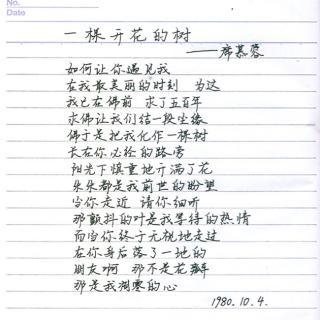 No.
Date
一棵开花的树
——席慕蓉
如何让你遇见我
在我最美丽的时刻 为这
我已在佛前 求了五百年
求佛让我们结一段尘缘
佛于是把我化作一棵树
长在你必经的路旁
阳光下慎重地开满了花
朵朵都是我前世的盼望
当你走近 请你细听
那颤抖的叶是我等待的热情
而当你终于无视地走过
在你身后落了一地的
朋友啊 那不是花瓣
那是我凋零的心
1980.10.4.